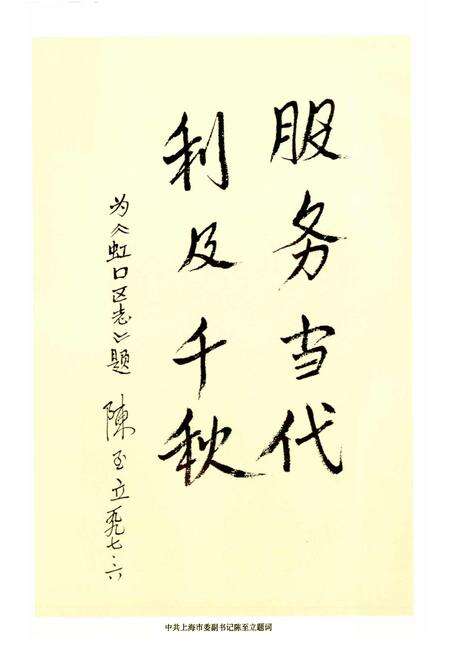 服务当代
利及千秋
为《虹口区志》题 陈至立 一九九七·六
中共上海市委副书记陈至立题词